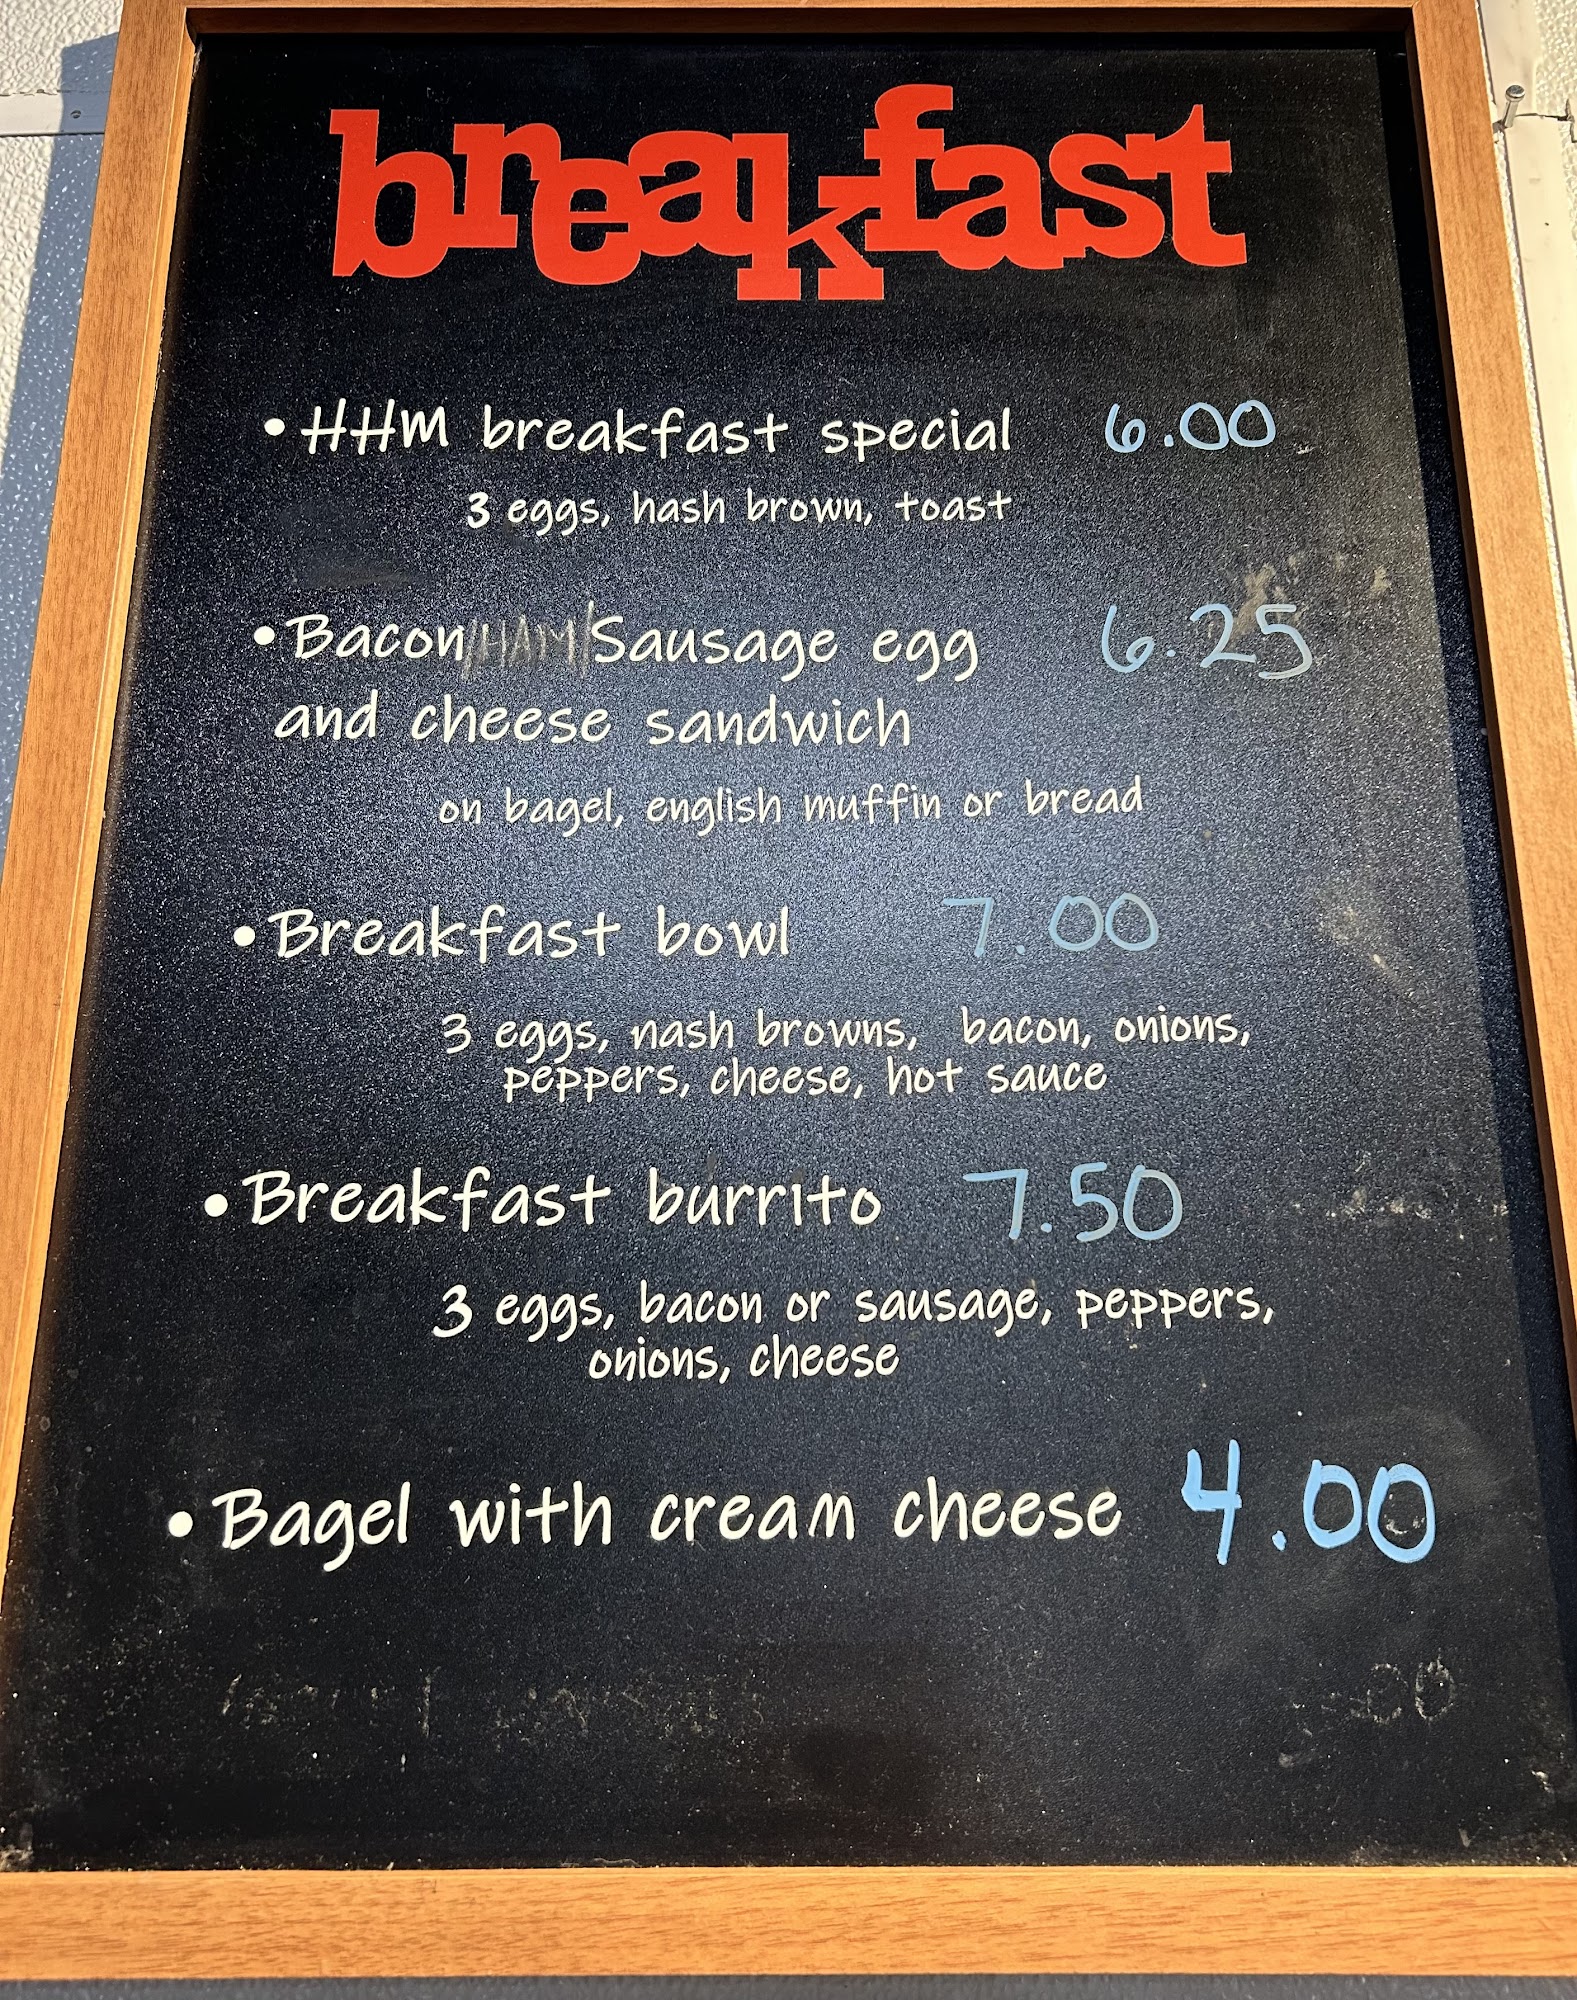 breakfast
• HHM breakfast special 6.00
3 eggs, hash brown, toast
• Bacon/HAM/Sausage egg 6.25
and cheese sandwich
on bagel, english muffin or bread
• Breakfast bowl 7.00
3 eggs, hash browns, bacon, onions,
peppers, cheese, hot sauce
• Breakfast burrito 7.50
3 eggs, bacon or sausage, peppers,
onions, cheese
• Bagel with cream cheese 4.00